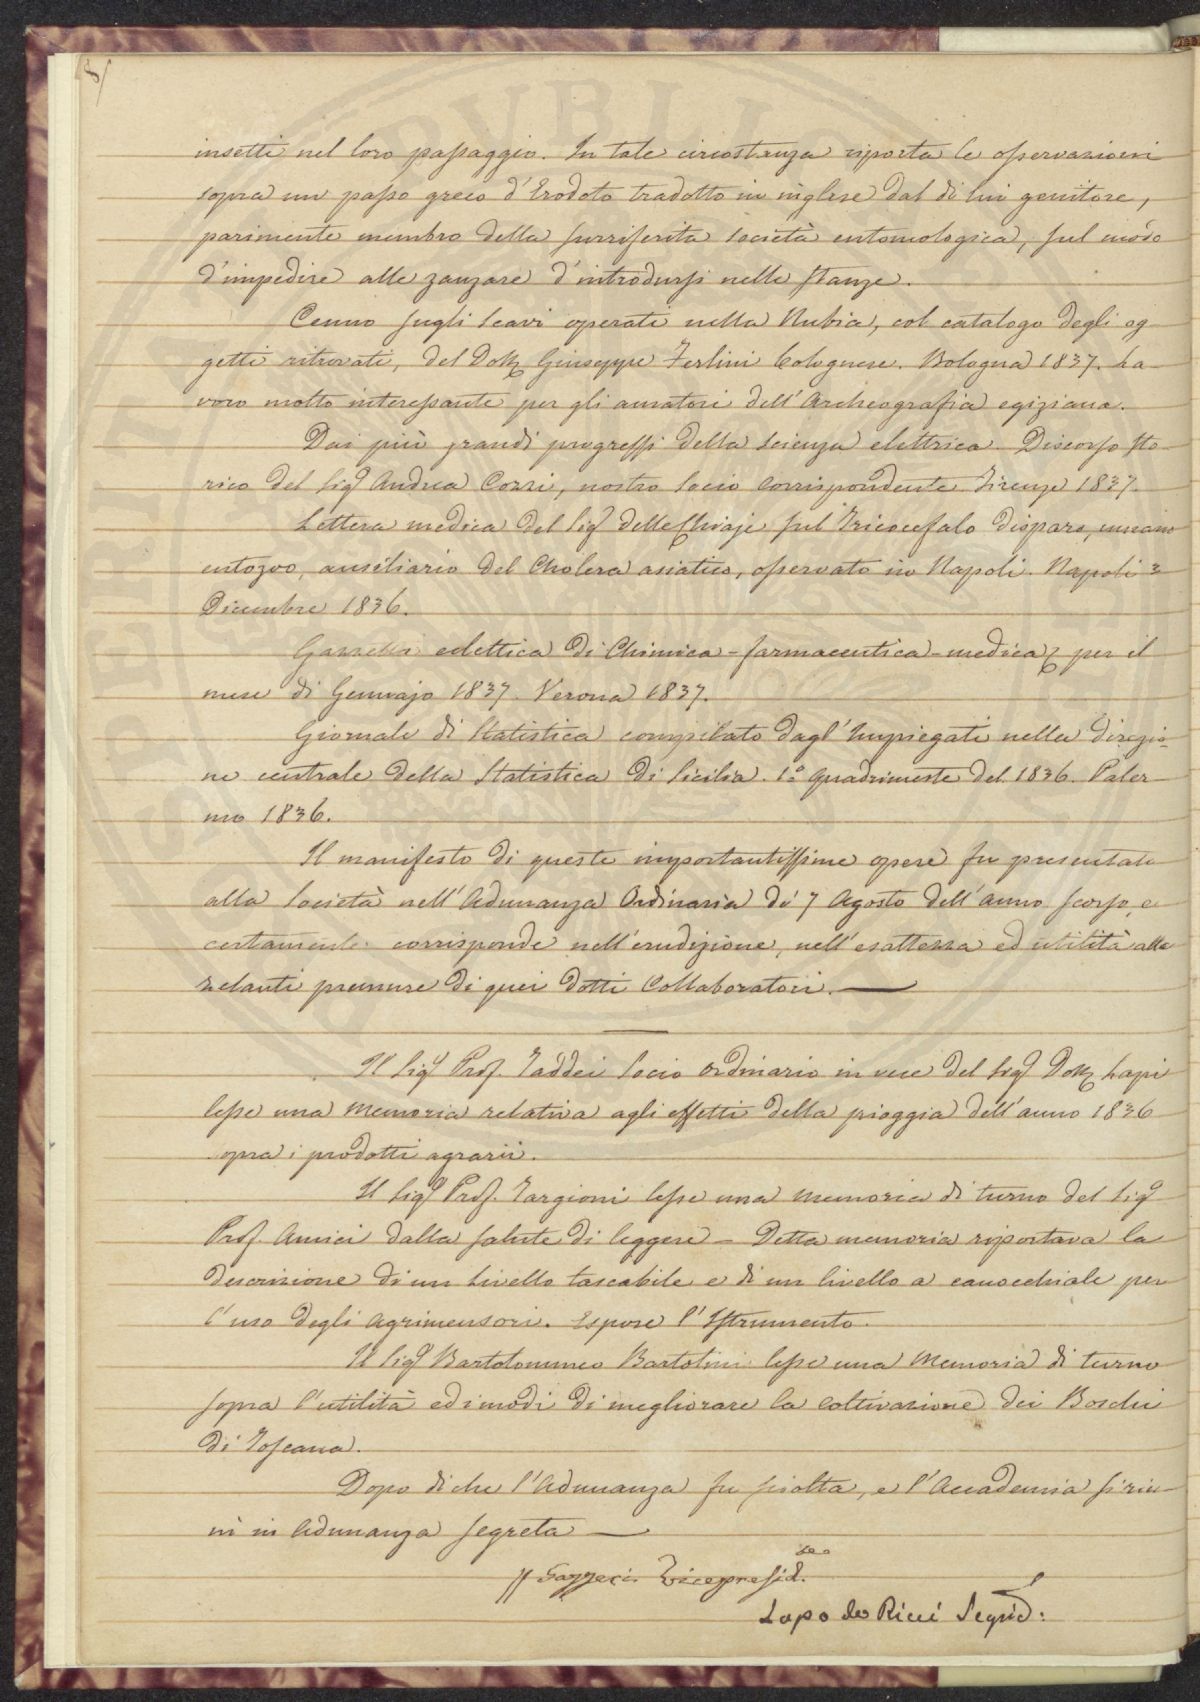 insetti nel loro passaggio. In tale circostanza riporta le osservazioni
sopra un passo greco d'Erodoto tradotto in inglese dal di lui genitore,
parimente membro della surriferita società entomologica, sul modo
d'impedire alle zanzare d'introdursi nelle stanze.
Cenno sugli scavi operati nella Nubia, col catalogo degli og-
getti ritrovati, del Dott. Giuseppe Ferlini bolognese. Bologna 1837. La-
voro molto interessante per gli amatori dell'Archeografia egiziana.
Dei più grandi progressi della scienza elettrica. Discorso sto-
rico del Sigr Andrea Cozzi, nostro Socio Corrispondente Firenze 1837.
Lettera medica del Sigr delle Chiaje sul Tricocefalo disparo, umano
entozoo, ausiliario del Cholera asiatico, osservato in Napoli. Napoli 3
Dicembre 1836.
Gazzetta eclettica di Chimica-farmaceutica-medica per il
mese di Gennajo 1837. Verona 1837.
Giornale di Statistica compilato dagl'Impiegati nella direzio-
ne centrale della Statistica di Sicilia. 1o quadrimestre del 1836. Paler-
mo 1836.
Il manifesto di queste importantissime opere fu presentato
alla Società nell'Adunanza Ordinaria de' 7 Agosto dell'anno scorso, e
certamente corrisponde nell'erudizione, nell'esattezza ed utilità alle
zelanti premure di quei dotti Collaboratori. —
Il Sigr Prof. Taddei Socio Ordinario in vece del Sigr Dott. Lapi
lesse una Memoria relativa agli effetti della pioggia dell'anno 1836
sopra i prodotti agrarii.
Il Sigr Prof. Targioni lesse una memoria di turno del Sigr
Prof. Amici dalla salute di leggere — Detta memoria riportava la
descrizione di un Livello tascabile e di un livello a canocchiale per
l'uso degli Agrimensori. Espose l'Istrumento.
Il Sigr Bartolommeo Bartolini lesse una Memoria di turno
sopra l'utilità ed i modi di megliorare la coltivazione dei Boschi
di Toscana.
Dopo di che l'Adunanza fu sciolta, e l'Accademia si riu-
nì in Adunanza segreta —
Gazzeri Vicepresid.
Lapo de Ricci Segrio: